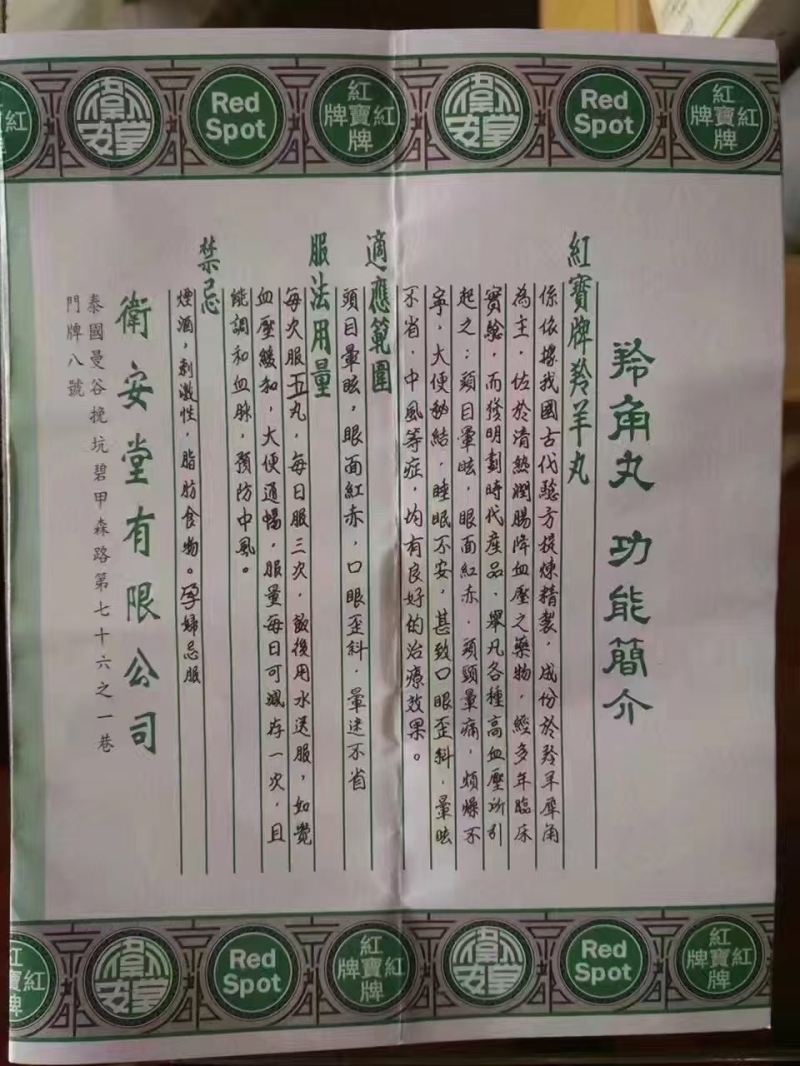 衛安堂
Red Spot
紅寶牌
紅牌
衛安堂
Red Spot
紅寶牌
紅牌
羚角丸 功能簡介
紅寶牌羚羊丸
係依據我國古代驗方提煉精製，成份於羚羊犀角
為主，佐於清熱潤腸降血壓之藥物，經多年臨床
實驗，而發明劃時代產品，舉凡各種高血壓所引
起之：頭目暈眩，眼面紅赤，頭頸暈痛，煩燥不
寧，大便秘結，睡眠不安，甚致口眼歪斜，暈眩
不省，中風等症，均有良好的治療效果。
適應範圍
頭目暈眩，眼面紅赤，口眼歪斜，暈迷不省
服法用量
每次服五丸，每日服三次，飯後用水送服，如覺
血壓緩和，大便通暢，服量每日可減存一次，且
能調和血脉，預防中風。
禁忌
煙酒，刺激性，脂肪食物。孕婦忌服
衛安堂有限公司
泰國曼谷挽坑碧甲森路第七十六之一巷
門牌八號
紅寶牌
紅牌
衛安堂
Red Spot
紅寶牌
紅牌
衛安堂
Red Spot
紅寶牌
紅牌